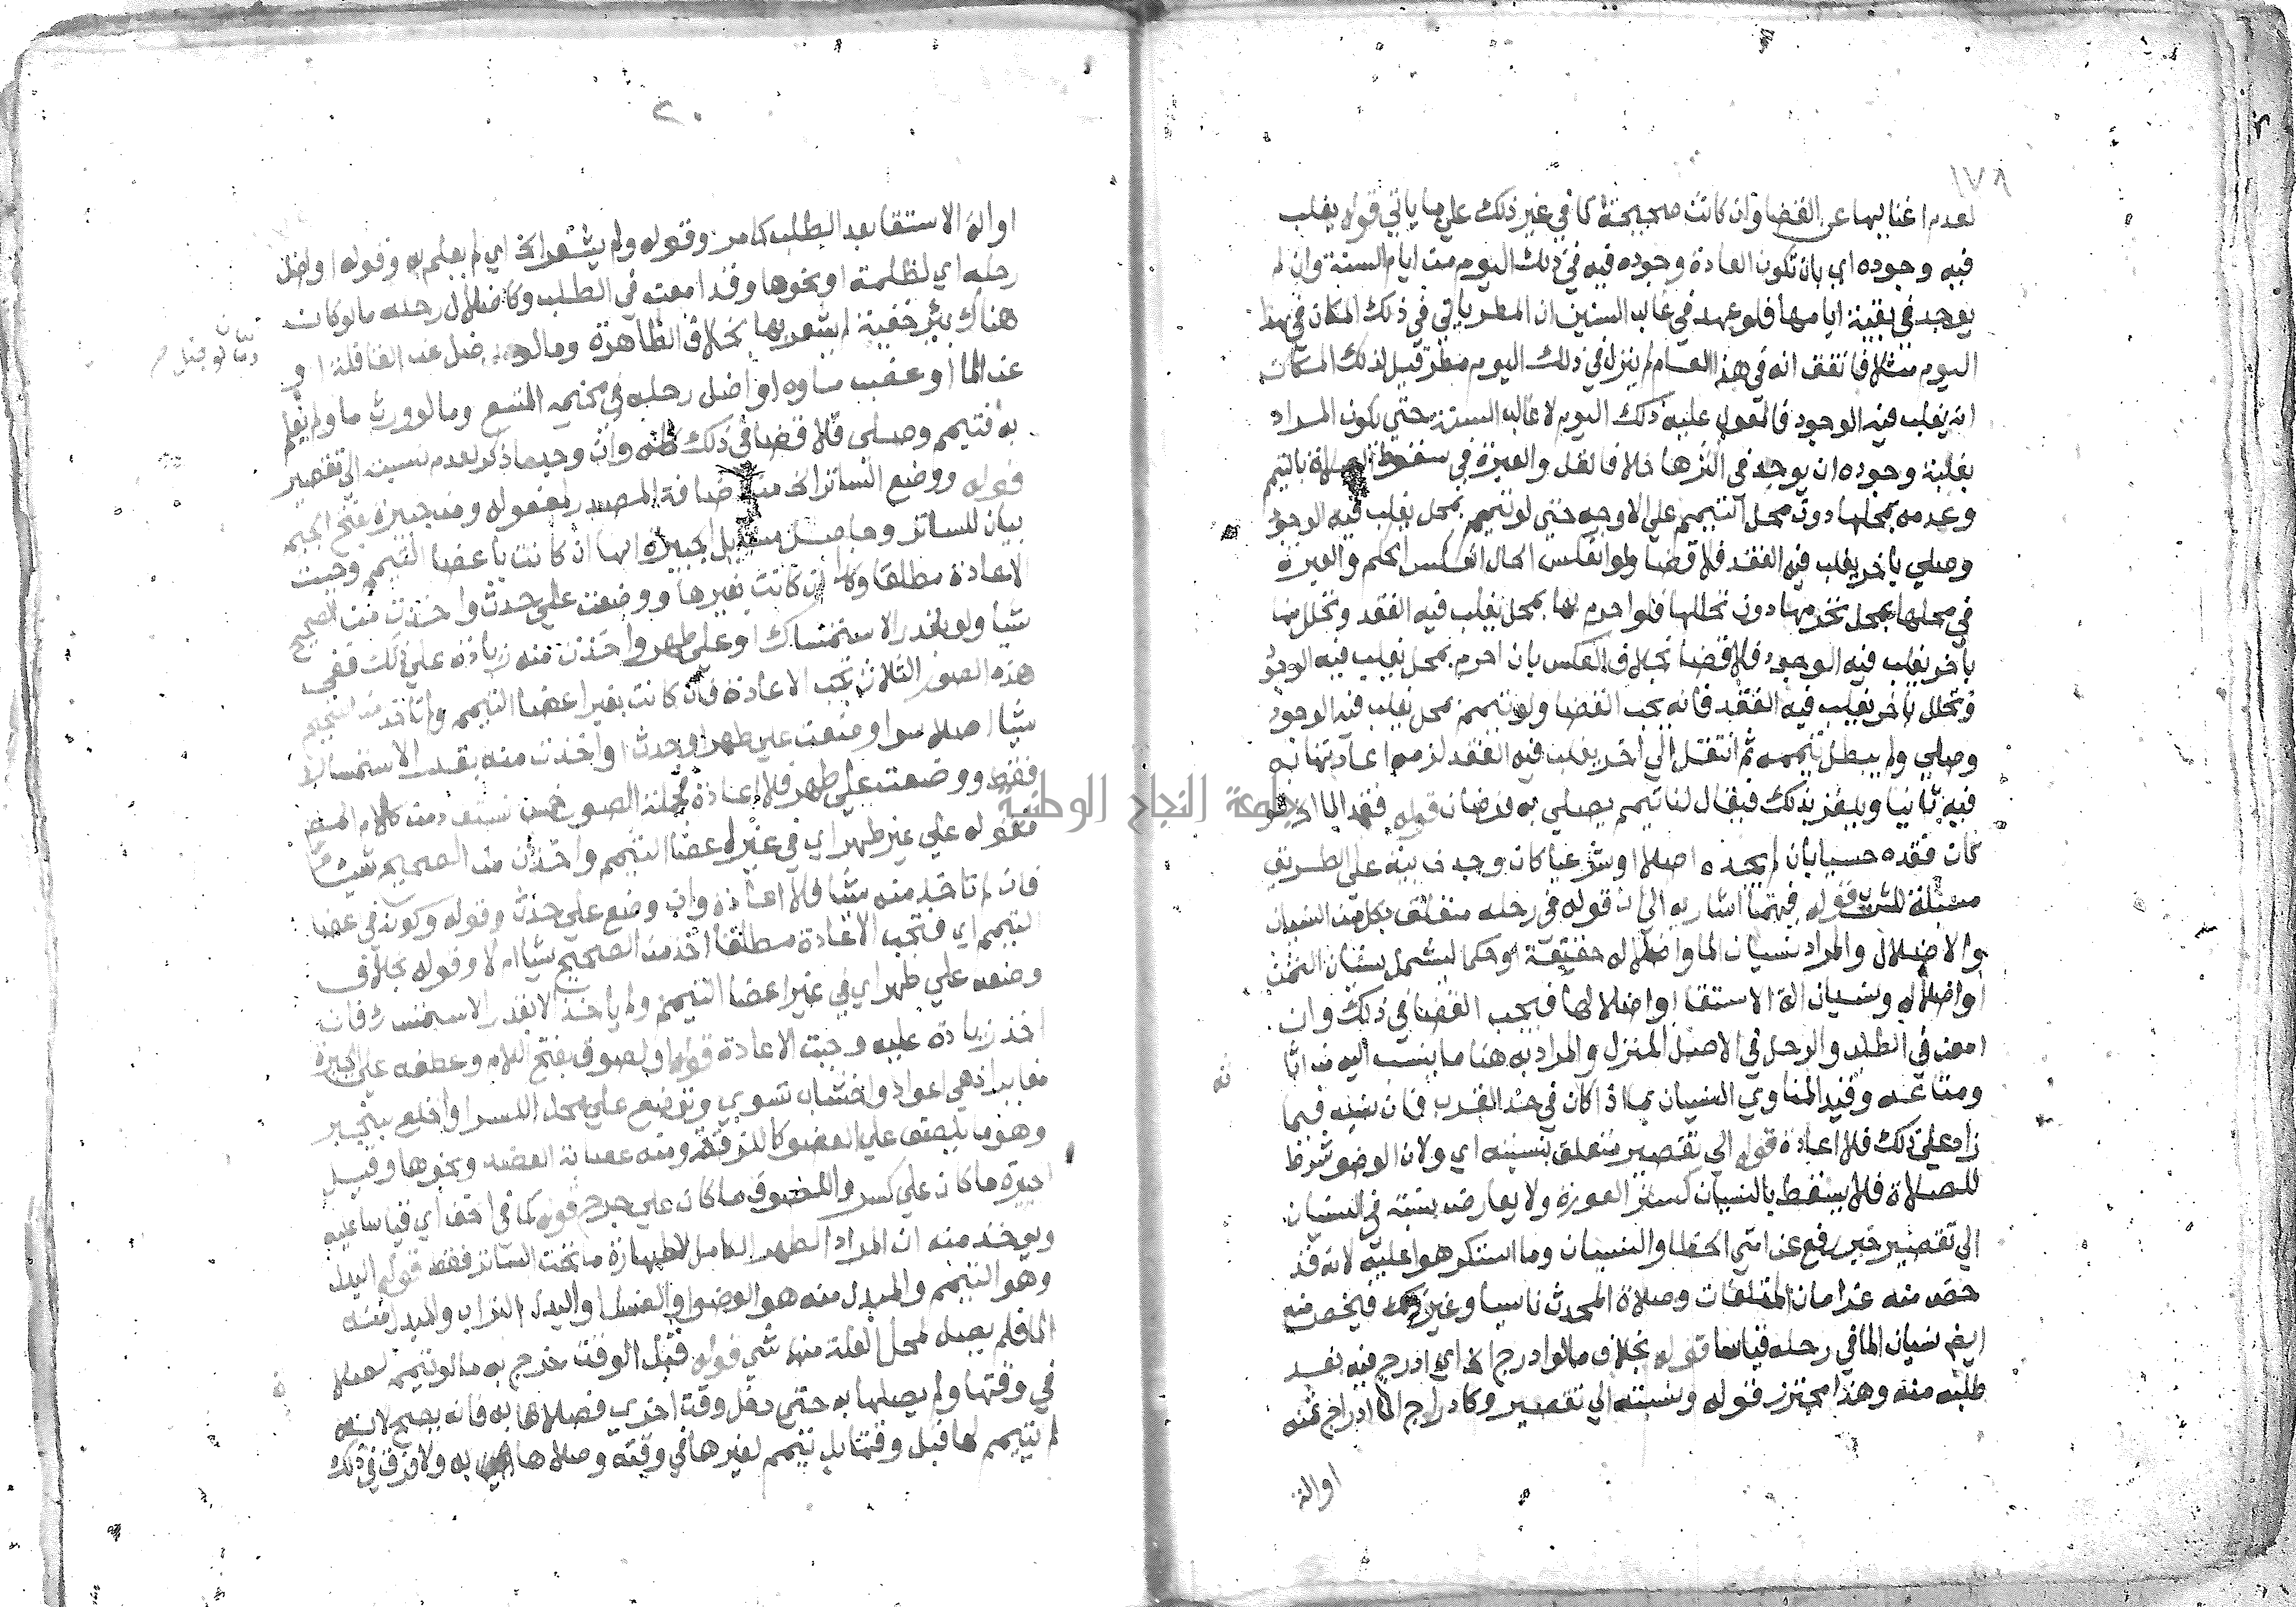 ١٧٨
لعدم اغنايها عن القضا وان كانت صحيحة كما في غير ذلك على ما ياتي قوله يغلب
فيه وجوده اي بان تكون العادة وجوده فيه في ذلك اليوم من ايام السنة وان لم
يوجد في بقية ايامها فلو عهد في غالب السنين ان المطر ياتي في ذلك المكان في هذا
اليوم مثلا فاتفق انه في هذا العام لم ينزل في ذلك اليوم مطر قيل لذلك المكان
انه يغلب فيه الوجود فالمعول عليه ذلك اليوم لا غالب السنة حتى يكون المراد
بغلبة وجوده ان يوجد في اكثرها خلافا لقل والعبرة في سقوط الصلاة بالتيمم
وعدمه بمحلها دون محل التيمم على الاوجه حتى لو تيمم بمحل يغلب فيه الوجود
وصلى باخر يغلب فيه الفقد فلا قضا ولو انعكس الحال انعكس الحكم والعبرة
في محلها بمحل تحرمها دون تحللها فلو احرم بها بمحل يغلب فيه الفقد وتحلل منها
باخر يغلب فيه الوجود فلا قضا بخلاف العكس بان احرم بمحل يغلب فيه الوجود
وتحلل باخر يغلب فيه الفقد فانه يجب القضا ولو تيمم بمحل يغلب فيه الوجود
وصلى ولم يبطل تيممه ثم انتقل الى اخر يغلب فيه الفقد لزمه اعادتها به
فيه ثانيا ويلغز بذلك فيقال لنا تيمم يصلى به فرضان قوله فقد الما اي ولو
كان فقده حسيا بان لم يجده اصلا او شرعيا كان وجد خابية على الطريق
مسبلة للشرب قوله فيهما اشار به الى ان قوله في رحله متعلق بكل من النسيان
والاضلال والمراد نسيان الما واضلاله حقيقة او حكما ليشمل نسيان الثمن
او اضلاله ونسيان الة الاستقا او اضلالها فيجب القضا في ذلك وان
امعن في الطلب والرحل في الاصل المنزل والمراد به هنا ما ينسب اليه من اثا
ثه
ومتاعه وقيد المناوي النسيان بما اذا كان في حد القرب فان نسيه فيما
زاد على ذلك فلا اعادة قوله الى تقصير متعلق بنسبته اي ولان الوضو شرط
للصلاة فلا يسقط بالنسيان كستر العورة ولا يعارض نسبته في النسيان
الى تقصير خبر رفع عن امتي الخطا والنسيان وما استكرهوا عليه لانه قد
خص منه غرامات المتلفات وصلاة المحدث ناسيا وغير ذلك فيخص منه
ايضا نسيان الما في رحله قياسا قوله بخلاف ما لو ادرج الخ اي ادرج فيه بعد
طلبه منه وهذا محترز قوله ونسبته الى تقصير وكادراج الما ادراج ثمنه
او الة
٢٠
او الة الاستقا بعد الطلب كما مر وقوله ولم يشعر الخ اي لم يعلم به وقوله او ضل
رحله اي لظلمة او نحوها وقد امعن في الطلب وكاضلال رحله ما لو كان
هناك بئر خفية لم يشعر بها بخلاف الظاهرة وما لو ضل عن القافلة او
عن الما او غصب ماوه او اضل رحله في مخيمه المتسع وما لو ورث ما ولم يعلم
به فتيمم وصلى فلا قضا في ذلك كله وان وجد ما ذكر لعدم نسبته الى تقصير
قوله ووضع الساتر الخ من اضافة المصدر لمفعوله ومن جبيرة بفتح الجيم
بيان للساتر وحاصل مسايل الجبيرة انها ان كانت باعضا التيمم وجبت
الاعادة مطلقا وكذا ان كانت بغيرها ووضعت على حدث واخذت من الصحيح
شيا ولو بقدر الاستمساك او على طهر واخذت منه زيادة على ذلك ففي
هذه الصور الثلاث تجب الاعادة فان كانت بغير اعضا التيمم ولم تاخذ من الصحيح
شيا اصلا سوا وضعت على طهر او حدث او اخذت منه بقدر الاستمساك
فقط ووضعت على طهر فلا اعادة فجملة الصور خمس تستفاد من كلام المص
فقوله على غير طهر اي في غير اعضا التيمم واخذت من الصحيح شيئا
فان لم تاخذ منه شيا فلا اعادة وان وضع على حدث وقوله وكونه في اعضا
التيمم اي فتجب الاعادة مطلقا اخذ من الصحيح شيا ام لا وقوله بخلاف
وضعه على طهر اي في غير اعضا التيمم ولم ياخذ الا بقدر الاستمساك فان
اخذ زيادة عليه وجبت الاعادة قوله او لصوق بفتح اللام وعطفه على جبيرة
مغاير اذ هي اعواد واخشاب تسوى وتوضع على محل الكسر او الخلع لينجبر
وهو ما يلصق على العضو كاللزقة ومنه عصابة الفصد ونحوها وقيل
الجبيرة ما كان على كسر واللصوق ما كان على جرح قوله كما في الخف اي قياسا عليه
ويوخذ منه ان المراد الطهر الكامل لا طهارة ما تحت الساتر فقط قوله البدل
وهو التيمم والمبدل منه هو الوضو او الغسل او البدل التراب والمبدل منه
الما فلم يصل لمحل العلة منهما شي قوله قبل الوقت خرج به ما لو تيمم لصلاة
في وقتها ولم يصلها به حتى دخل وقت اخرى فصلاها به فانه يصح لانه
لم يتيمم لها قبل وقتها بل تيمم لغيرها في وقته وصلاها هي به ولا فرق في ذلك
جامعة النجاح الوطنية